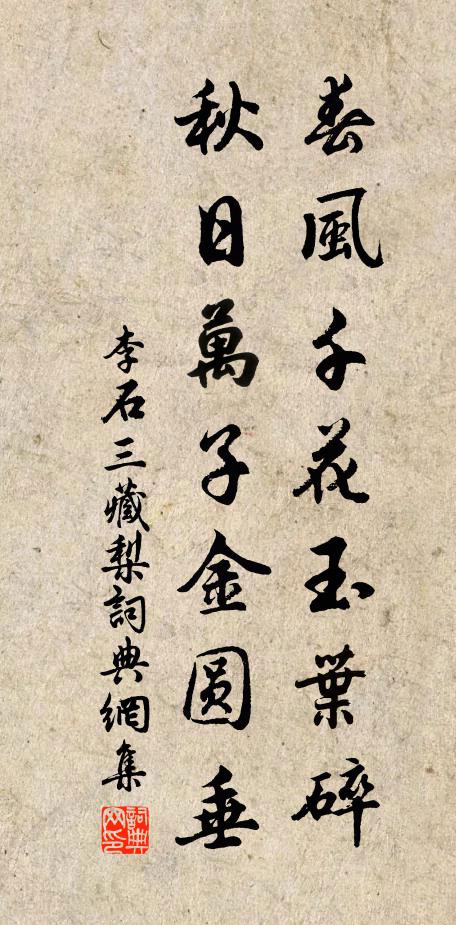 春風千花玉葉碎
秋日萬子金圓垂
李石三藏梨詞典網集
詞典網印